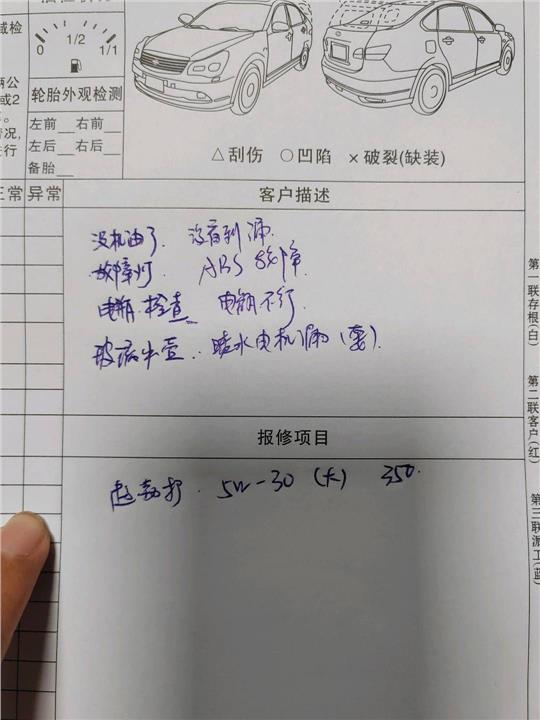 域检
0 1/2 1/1
两公
或2
情况,
进行
轮胎外观检测
左前__右前__
左后__右后__
备胎__
△刮伤 ○凹陷 ×破裂(缺装)
正常 异常
客户描述
没机油了. 没看到漏.
故障灯. ABS故障.
电瓶.检查 电瓶不行.
玻璃水壶.喷水电机漏(要).
报修项目
5W-30 (大) 350.
第一联存根(白)
第二联客户(红)
第三联派工(蓝)